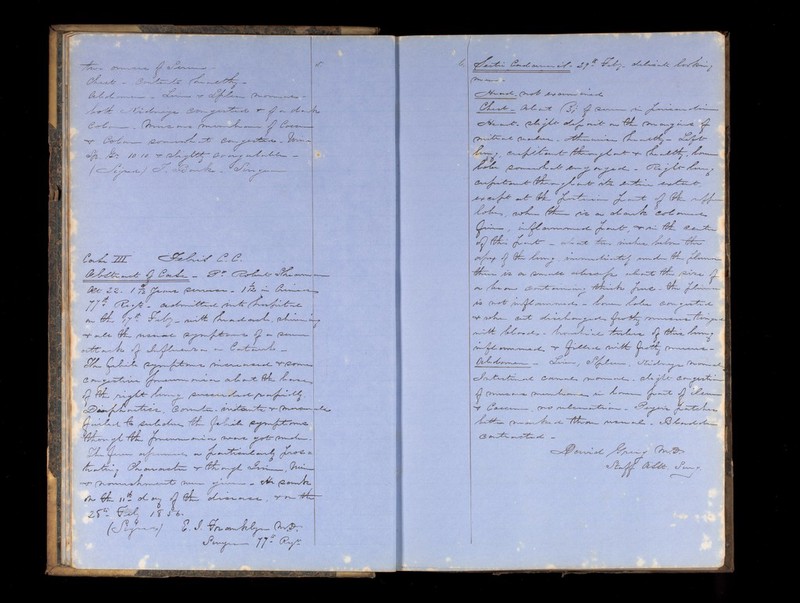 two ounces of Serum
Chest - Contents healthy -
Abdomen - Liver & Spleen normal -
both Kidneys congested & of a dark
Colour. Mucous membrane of Coecum
& Colon somewhat congested.
10.10 & slightly coagulable -
(Signed) Surgeon
5
Case III Febris C.C.
Abstract of Case - Pt Robert
Aet 22. 1 years service - in Crimea
77th Regt - admitted into hospital
on the 7th Feby - with headache, shivering
& all the usual symptoms of a
attack of Influenza or Catarrh -
The febrile symptoms increased & some
congestive pneumonia about the base
of the right lung succeeded rapidly.
Diaphoretics, Counter irritants &
failed to subdue the febrile symptoms
though the pneumonia were got
The fever assumed a particularly pros-
trating character & though Quinine, Wine
& nourishment were given - He sank
on the 11th day of the disease, & on the
28th Feby 1856.
(Signed) E. J. Franklyn M.D.
Surgeon 77th Regt
6
Sectio Cadaveris. 29th Feby. delicate looking
man -
Head not examined
Chest - About of serum in pericardium
Heart. slight deposit on the margins of
mitral valve. Otherwise healthy. Left
lung, crepitant throughout & healthy, lower
lobe somewhat engorged - Right lung
crepitant throughout its entire extent
except at the posterior part of the upper
lobe, where there is a dark coloured
firm, inflammed part, & in the centre
of this part - about two inches below the
apex of the lung, immediately under the pleura
there is a small abscess about the size of
a bean containing thick pus. the pleura
is not inflammed - lower lobe congested
& when cut discharged frothy mucus tinged
with blood - bronchial tubes of this lung
inflammed & filled with frothy mucus -
Abdomen - Liver, Spleen, Kidneys normal
Intestinal canal, normal. slight congestion
of mucous membrane in lower part of Ileum
& Coecum, no ulceration. Peyers patches
little marked than usual. Bladder
contracted -
David Greig M.D.
Staff Asst Surg